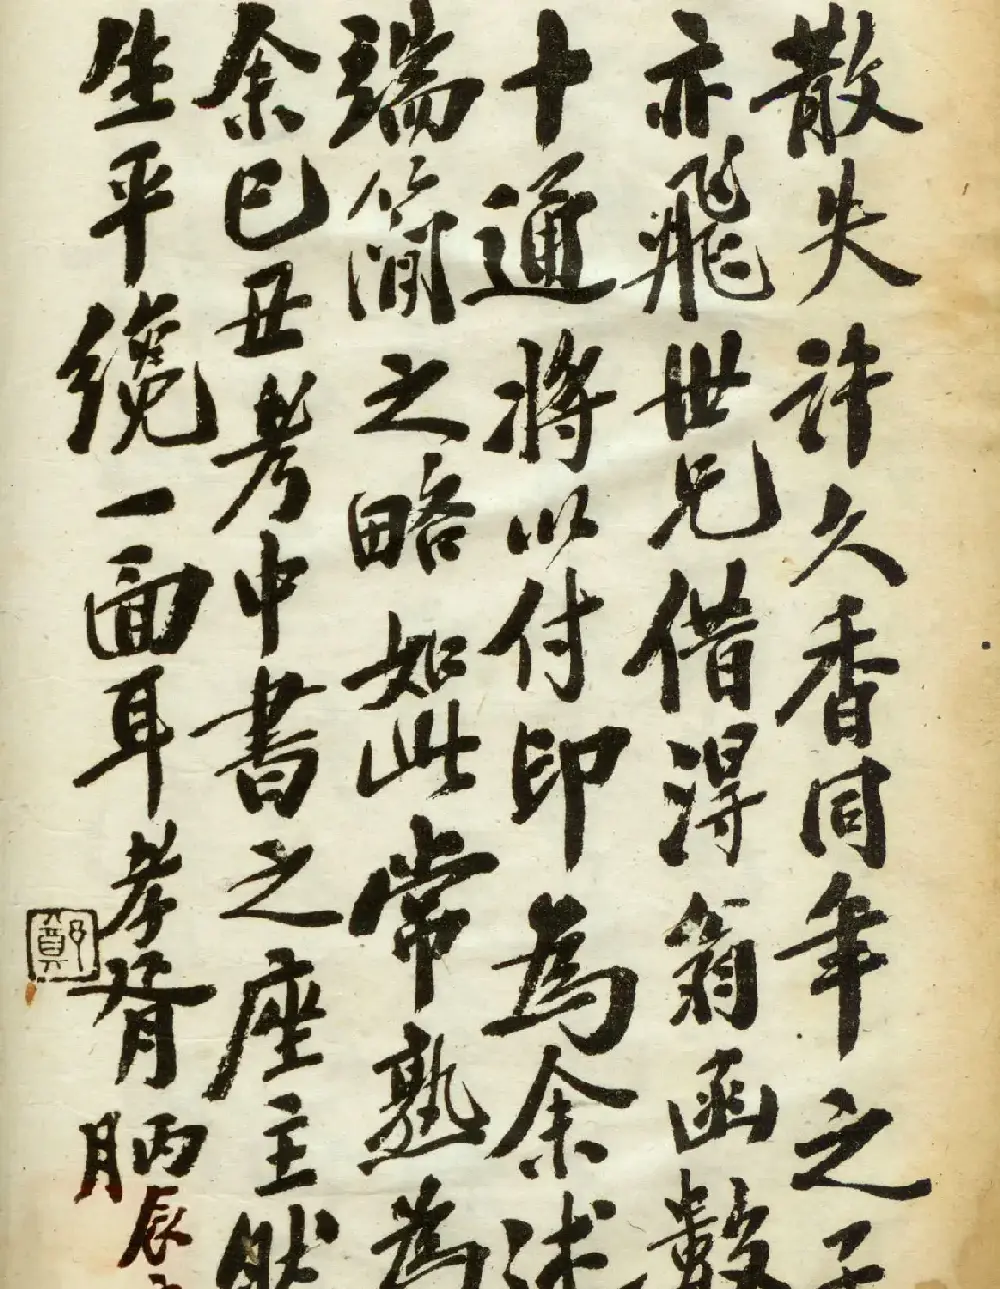 散失許久香同年之子
亦飛世兄借得翁函數
十通將以付印為余述
瑞簡之略如此常熟為
余已丑考中書之座主然
生平纔一面耳孝胥丙辰
月
鄭